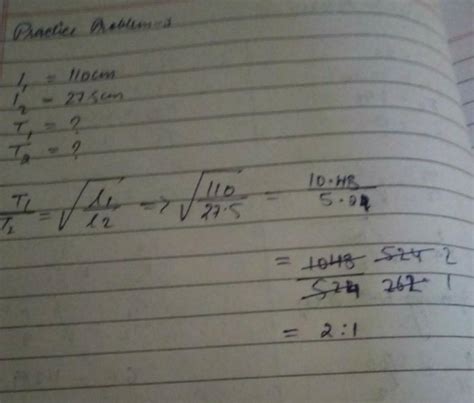 Practice Problem-2
l₁ = 110cm
l₂ = 27.5cm
T₁ = ?
T₂ = ?
T₁/T₂ = √(l₁/l₂) => √(110/27.5) = 10.48/5.24
= 1048/524 524/262 2/1
= 2:1